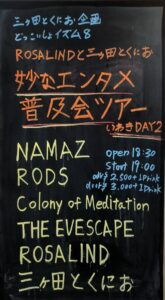 三ヶ田とくにお企画
どっこいしょイズム8
ROSALINDと三ヶ田とくにお
妙なエンタメ
普及会ツアー
いわきDAY2
NAMAZ
RODS
Colony of Meditation
THE EVESCAPE
ROSALIND
三ヶ田とくにお
open 18:30
Start 19:00
adv 2.500+1Drink
door 3.000+1Drink